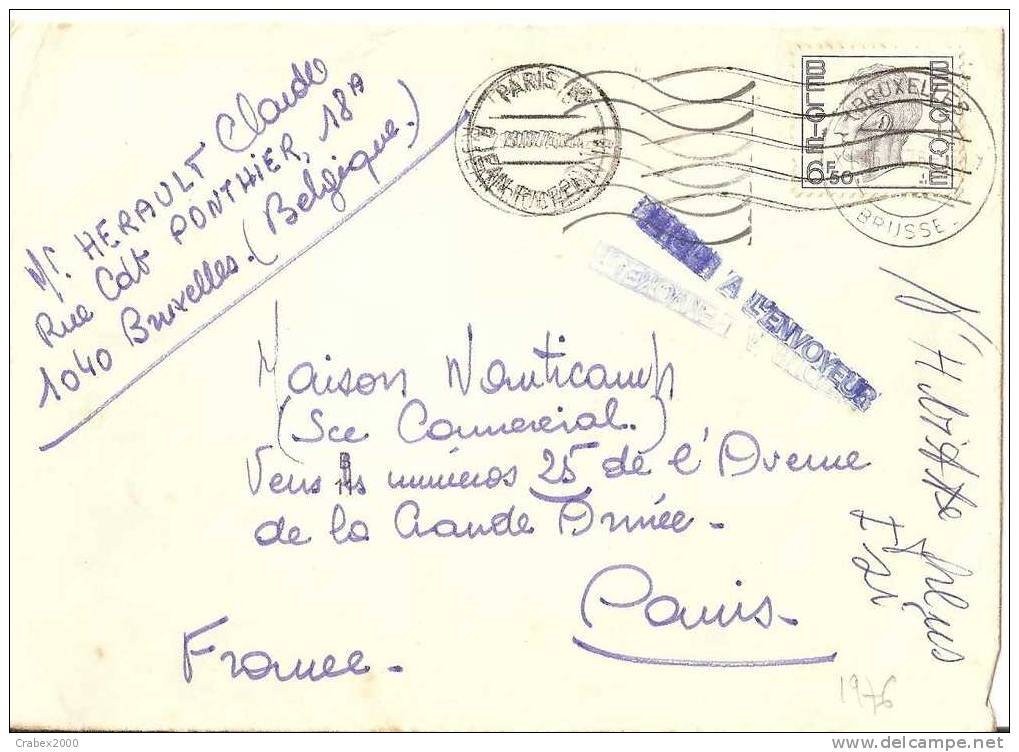 Mr. HERAULT Claude
Rue Cdt PONTHIER, 18A
1040 Bruxelles. (Belgique.)
PARIS
BELGIE BELGIQUE
6F50
BRUXELLES
BRUSSE
RETOUR A L'ENVOYEUR
RETOUR A L'ENVOYEUR
Maison Wanticamp
(Sce Commercial.)
Vers les numéros 25 de l'Avenue
de la Grande Armée -
Paris -
France -
B
N'Habite plus
Ici
1976
Crabex2000
www.delcampe.net